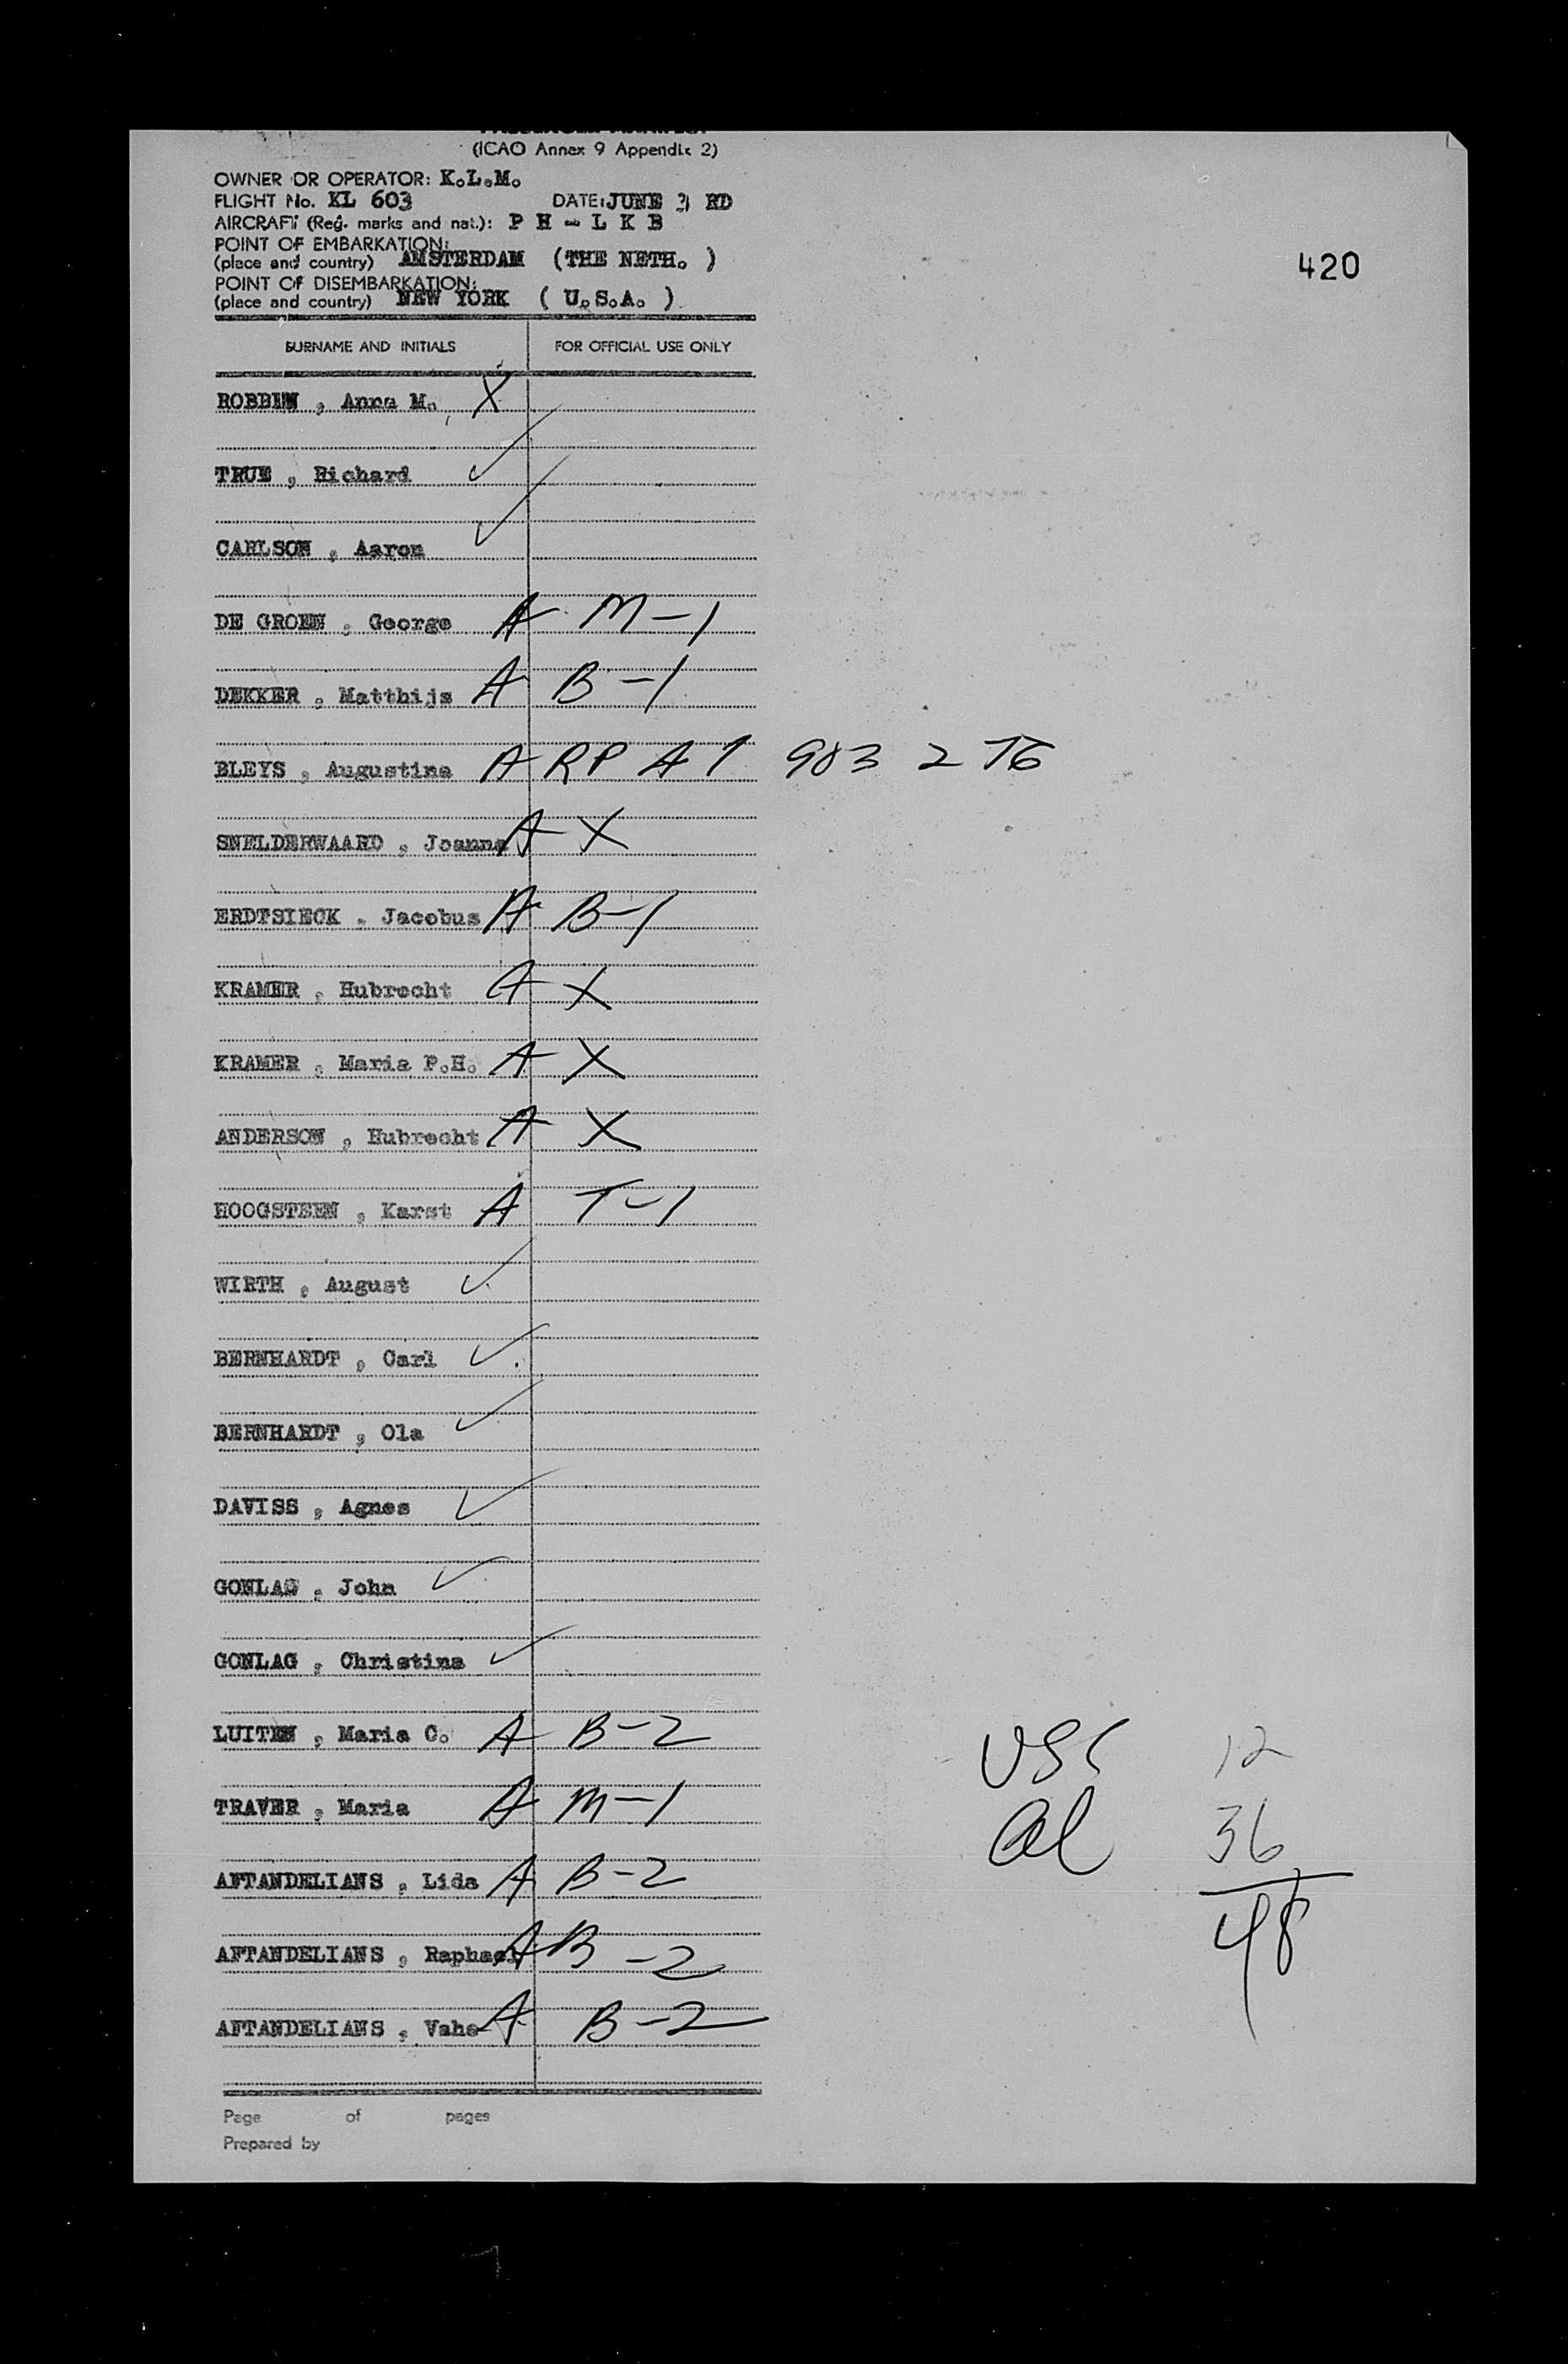 PASSENGER MANIFEST
(ICAO Annex 9 Appendix 2)
OWNER OR OPERATOR: K.L.M.
FLIGHT No. KL 603 DATE: JUNE 3 RD
AIRCRAFT (Reg. marks and nat.): P H - L K B
POINT OF EMBARKATION:
(place and country) AMSTERDAM (THE NETH. )
420
POINT OF DISEMBARKATION:
(place and country) NEW YORK ( U.S.A. )
SURNAME AND INITIALS FOR OFFICIAL USE ONLY
ROBBIN , Anna M. X
TRUE , Richard ✓
CARLSON , Aaron ✓
DE GROEN , George A M-1
DEKKER , Matthijs A B-1
BLEYS , Augustina A RP A 7 983 2 76
SNELDERWAARD , Joanna A X
ERDTSIECK , Jacobus A B-1
KRAMER , Hubrecht A X
KRAMER , Maria P.H. A X
ANDERSON , Hubrecht A X
HOOGSTEEN , Karst A T-1
WIRTH , August ✓
BERNHARDT , Carl ✓
BERNHARDT , Ola ✓
DAVISS , Agnes ✓
GONLAG , John ✓
GONLAG , Christina ✓
LUITEN , Maria C. A B-2
USC 12
TRAVER , Maria A M-1
al 36
AFTANDELIANS , Lida A B-2
48
AFTANDELIANS , Raphael A B-2
AFTANDELIANS , Vahe A B-2
Page of pages
Prepared by